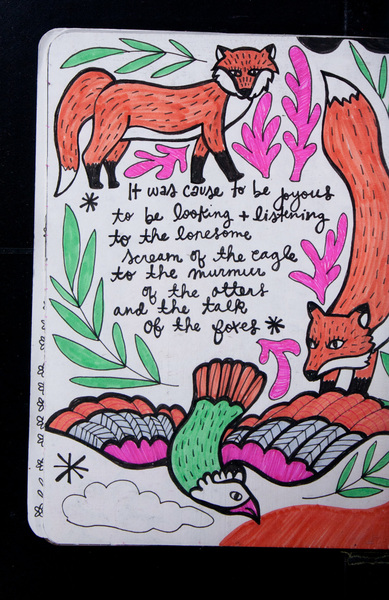 It was cause to be joyous
to be looking + listening
to the lonesome
scream of the eagle
to the murmur
of the otters
and the talk
of the foxes *